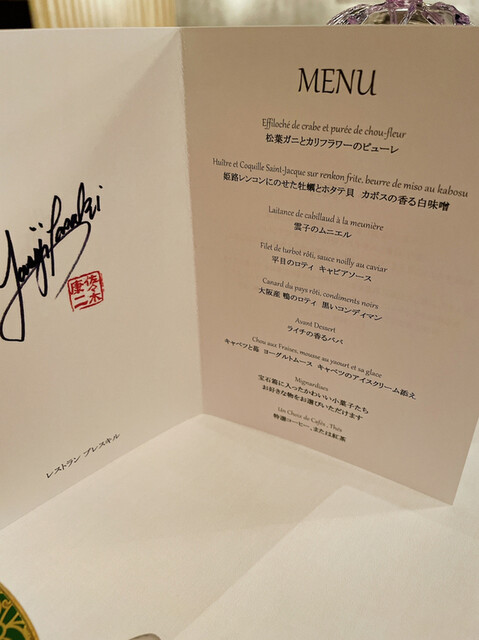 Yasuji Sasaki
佐々木
康二
レストラン プレスキル
MENU
Effiloché de crabe et purée de chou-fleur
松葉ガニとカリフラワーのピューレ
Huître et Coquille Saint-Jacque sur renkon frite, beurre de miso au kabosu
姫路レンコンにのせた牡蠣とホタテ貝 カボスの香る白味噌
Laitance de cabillaud à la meunière
雲子のムニエル
Filet de turbot rôti, sauce noilly au caviar
平目のロティ キャビアソース
Canard du pays rôti, condiments noirs
大阪産 鴨のロティ 黒いコンディマン
Avant Dessert
ライチの香るババ
Chou aux Fraises, mousse au yaourt et sa glace
キャベツと苺 ヨーグルトムース キャベツのアイスクリーム添え
Mignardises
宝石箱に入ったかわいい小菓子たち
お好きな物をお選びいただけます
Un Choix de Cafés , Thés
特選コーヒー、または紅茶